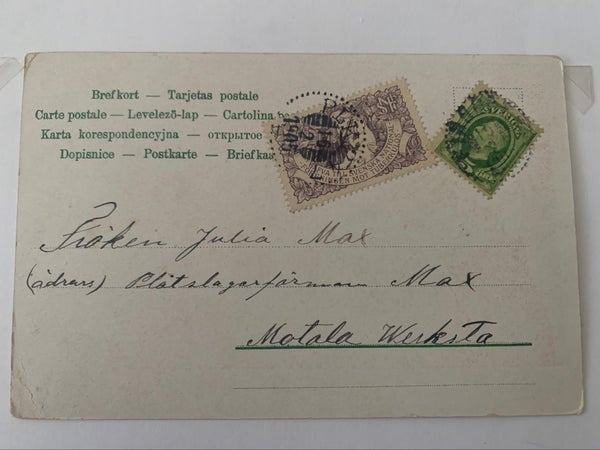 Brefkort — Tarjetas postale
Carte postale — Levelező-lap — Cartolina
Karta korespondencyjna — открытое
Dopisnice — Postkarte — Briefkaa
SVERIGE
Fröken Julia Max
(ådrars) Plåtslagarförman Max
Motala Werksta